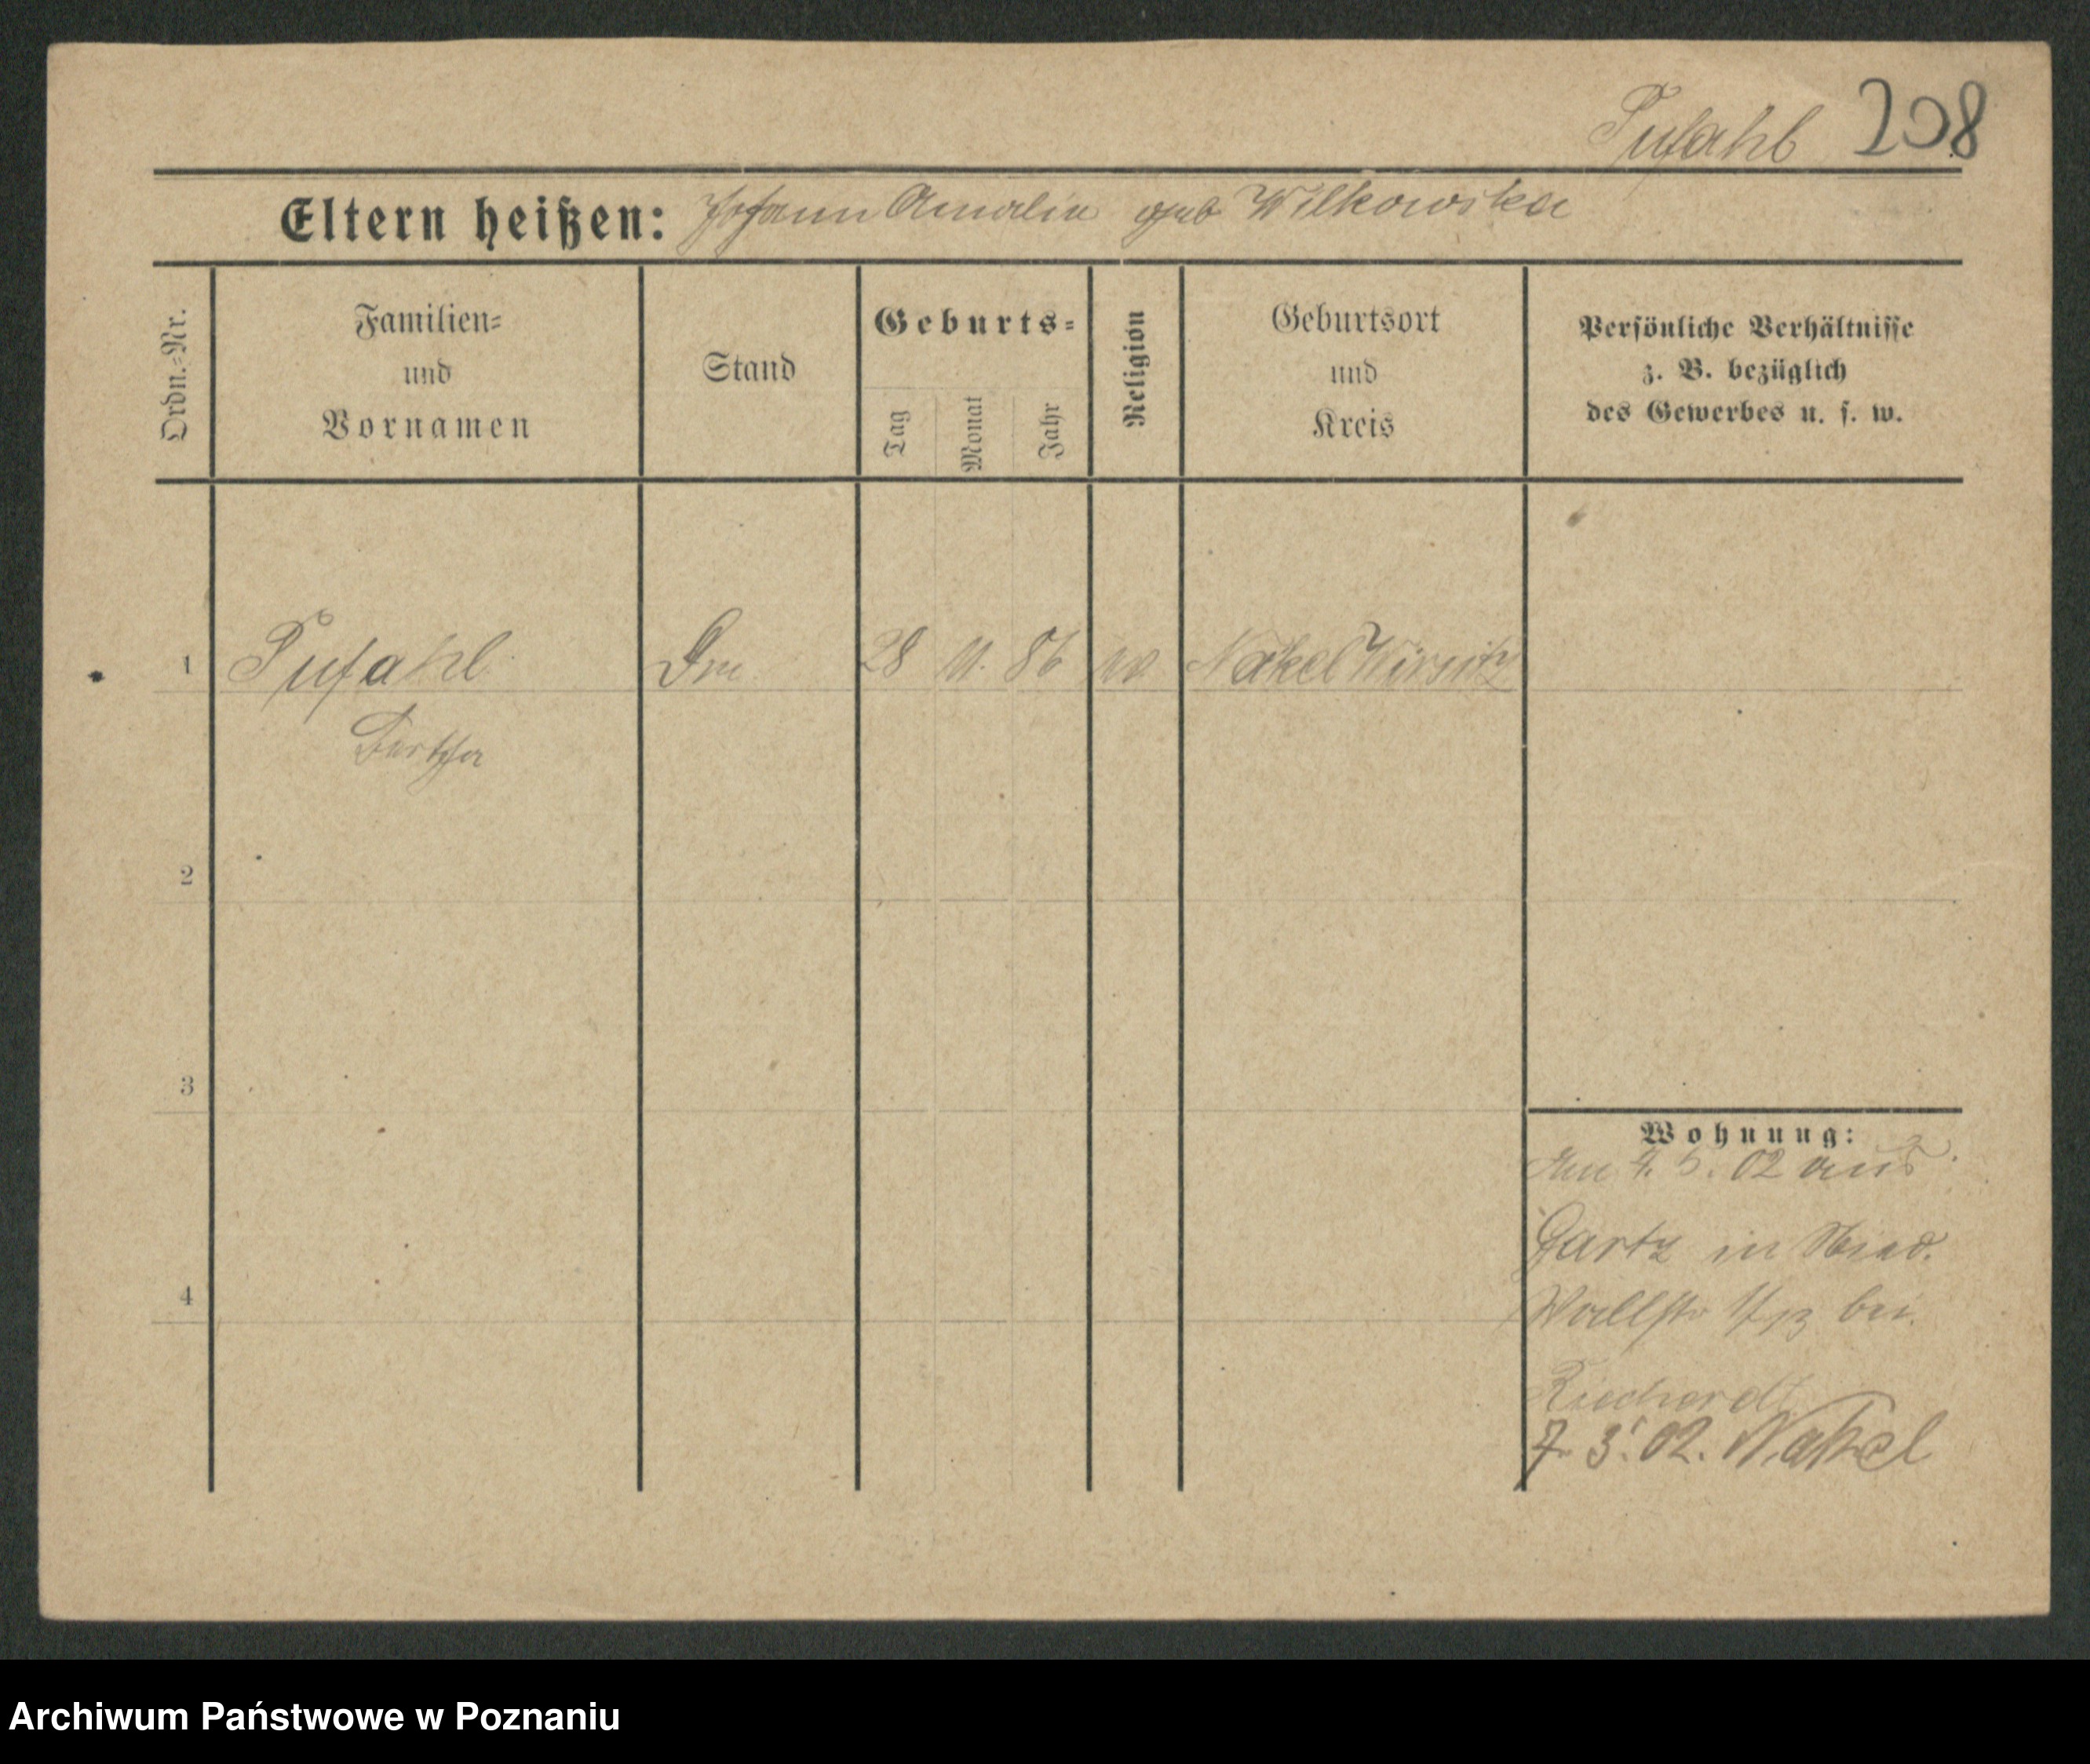 Pufahl 208
Eltern heißen: Johann Amalie geb Wilkowska
Ordn.=Nr.
Familien=
und
Vornamen
Stand
Geburts=
Tag
Monat
Jahr
Religion
Geburtsort
und
Kreis
Persönliche Verhältnisse
z. B. bezüglich
des Gewerbes u. s. w.
1 Pufahl 28 11. 86 Nakel Wirsitz
Bertha
2
3
4
Wohnung:
02 aus
Gartz in
Wallstr bei
7. 3. 02. Nakel
Archiwum Państwowe w Poznaniu